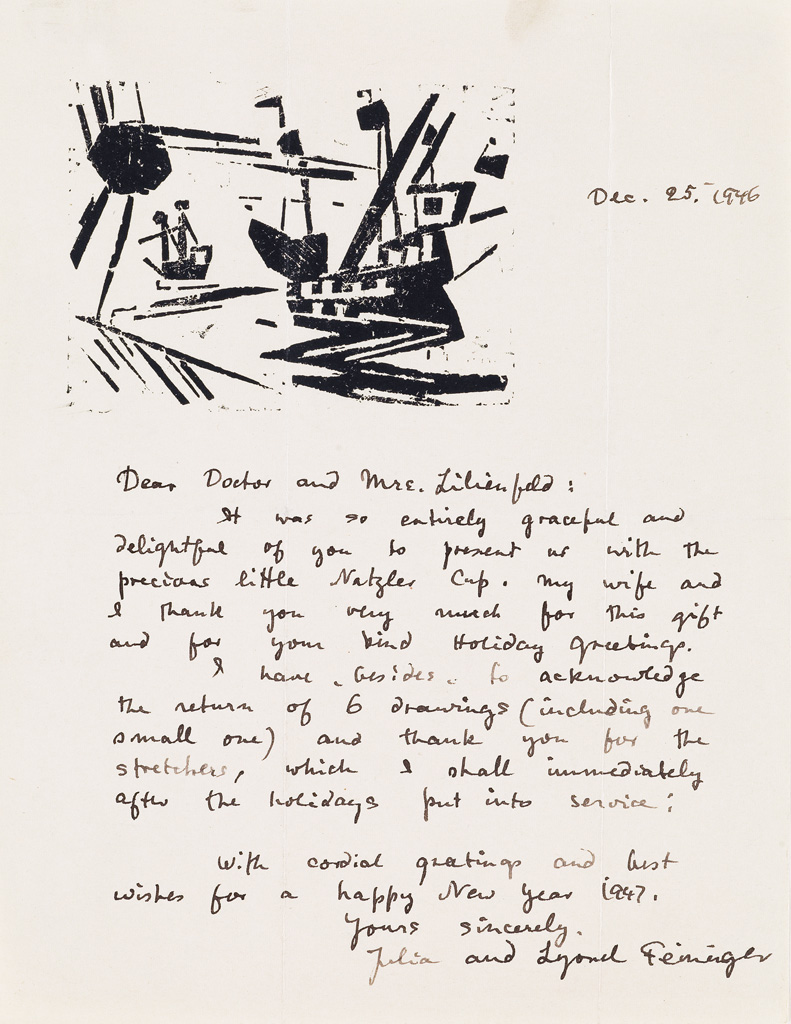 Dec. 25. 1946
Dear Doctor and Mrs. Lilienfeld:
It was so entirely graceful and
delightful of you to present us with the
precious little Natzler Cup. My wife and
I thank you very much for this gift
and for your kind Holiday Greetings.
I have, besides, to acknowledge
the return of 6 drawings (including one
small one) and thank you for the
stretchers, which I shall immediately
after the holidays put into service;
With cordial greetings and best
wishes for a happy New Year 1947.
Yours sincerely.
Julia and Lyonel Feininger